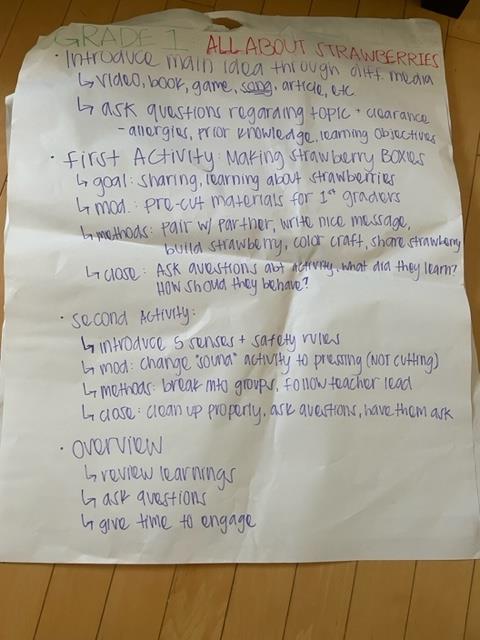 GRADE 1 ALL ABOUT STRAWBERRIES
· Introduce main idea through diff. media
↳ video, book, game, song, article, etc
↳ ask questions regarding topic + clearance
- allergies, prior knowledge, learning objectives
· First Activity: Making strawberry BOXies
↳ goal: sharing, learning about strawberries
↳ mod.: pre-cut materials for 1st graders
↳ methods: pair w/ partner, write nice message,
build strawberry, color craft, share strawberry
↳ close: Ask questions abt activity, what did they learn?
How should they behave?
· Second Activity:
↳ introduce 5 senses + safety rules
↳ mod: change "sound" activity to pressing (NOT cutting)
↳ methods: break into groups, follow teacher lead
↳ close: clean up properly, ask questions, have them ask
· Overview
↳ review learnings
↳ ask questions
↳ give time to engage